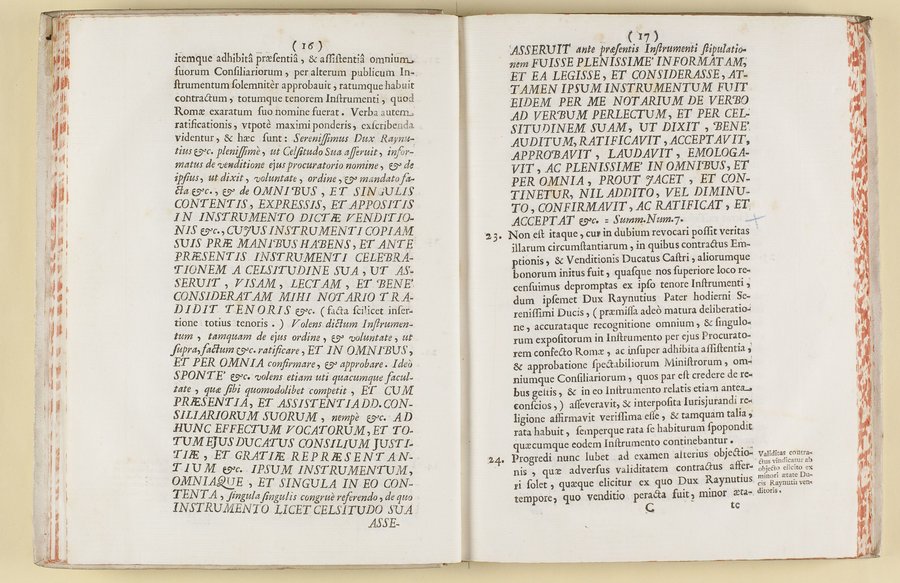 ( 16 )
itemque adhibitâ præsentiâ, & assistentiâ omnium
suorum Consiliariorum, per alterum publicum In-
strumentum solemnitèr approbauit, ratumque habuit
contractum, totumque tenorem Instrumenti, quod
Romæ exaratum suo nomine fuerat. Verba autem
ratificationis, vtpotè maximi ponderis, exscribenda
videntur, & hæc sunt: Serenissimus Dux Raynu-
tius &c. plenissimè, ut Celsitudo Sua asseruit, infor-
matus de venditione ejus procuratorio nomine, & de
ipsius, ut dixit, voluntate, ordine, & mandato fa-
cta &c., & de OMNIBUS, ET SINGULIS
CONTENTIS, EXPRESSIS, ET APPOSITIS
IN INSTRUMENTO DICTÆ VENDITIO-
NIS &c., CUJUS INSTRUMENTI COPIAM
SUIS PRÆ MANIBUS HABENS, ET ANTE
PRÆSENTIS INSTRUMENTI CELEBRA-
TIONEM A CELSITUDINE SUA, UT AS-
SERUIT, VISAM, LECTAM, ET BENE'
CONSIDERATAM MIHI NOTARIO TRA-
DIDIT TENORIS &c. (facta scilicet inser-
tione totius tenoris.) Volens dictum Instrumen-
tum, tamquam de ejus ordine, & voluntate, ut
supra, factum &c. ratificare, ET IN OMNIBUS,
ET PER OMNIA confirmare, & approbare. Ideò
SPONTE' &c. volens etiam uti quacumque facul-
tate, quæ sibi quomodolibet competit, ET CUM
PRÆSENTIA, ET ASSISTENTIA DD. CON-
SILIARIORUM SUORUM, nempè &c. AD
HUNC EFFECTUM VOCATORUM, ET TO-
TUM EJUS DUCATUS CONSILIUM JUSTI-
TIÆ, ET GRATIÆ REPRÆSENTAN-
TIUM &c. IPSUM INSTRUMENTUM,
OMNIAQUE, ET SINGULA IN EO CON-
TENTA, singula singulis congruè referendo, de quo
INSTRUMENTO LICET CELSITUDO SUA
ASSE-
( 17 )
ASSERUIT ante præsentis Instrumenti stipulatio-
nem FUISSE PLENISSIME' INFORMATAM,
ET EA LEGISSE, ET CONSIDERASSE, AT-
TAMEN IPSUM INSTRUMENTUM FUIT
EIDEM PER ME NOTARIUM DE VERBO
AD VERBUM PERLECTUM, ET PER CEL-
SITUDINEM SUAM, UT DIXIT, BENE'
AUDITUM, RATIFICAVIT, ACCEPTAVIT,
APPROBAVIT, LAUDAVIT, EMOLOGA-
VIT, AC PLENISSIME' IN OMNIBUS, ET
PER OMNIA, PROUT JACET, ET CON-
TINETUR, NIL ADDITO, VEL DIMINU-
TO, CONFIRMAVIT, AC RATIFICAT, ET
ACCEPTAT &c. = Summ. Num. 7.
23. Non est itaque, cur in dubium revocari possit veritas
illarum circumstantiarum, in quibus contractus Em-
ptionis, & Venditionis Ducatus Castri, aliorumque
bonorum initus fuit, quasque nos superiore loco re-
censuimus depromptas ex ipso tenore Instrumenti,
dum ipsemet Dux Raynutius Pater hodierni Se-
renissimi Ducis, (præmissa adeò matura deliberatio-
ne, accurataque recognitione omnium, & singulo-
rum expositorum in Instrumento per ejus Procurato-
rem confecto Romæ, ac insuper adhibita assistentia,
& approbatione spectabiliorum Ministrorum, om-
niumque Consiliariorum, quos par est credere de re-
bus gestis, & in eo Instrumento relatis etiam antea
conscios,) asseveravit, & interposita Jurisjurandi re-
ligione affirmavit verissima esse, & tamquam talia,
rata habuit, semperque rata se habiturum spopondit
quæcumque eodem Instrumento continebantur.
24. Progredi nunc lubet ad examen alterius objectio-
nis, quæ adversus validitatem contractus affer-
ri solet, quæque elicitur ex quo Dux Raynutius
tempore, quo venditio peracta fuit, minor æta-
Validitas contra-
ctus vindicatur ab
objecto elicito ex
minori ætate Du-
cis Raynutii ven-
ditoris.
C
te